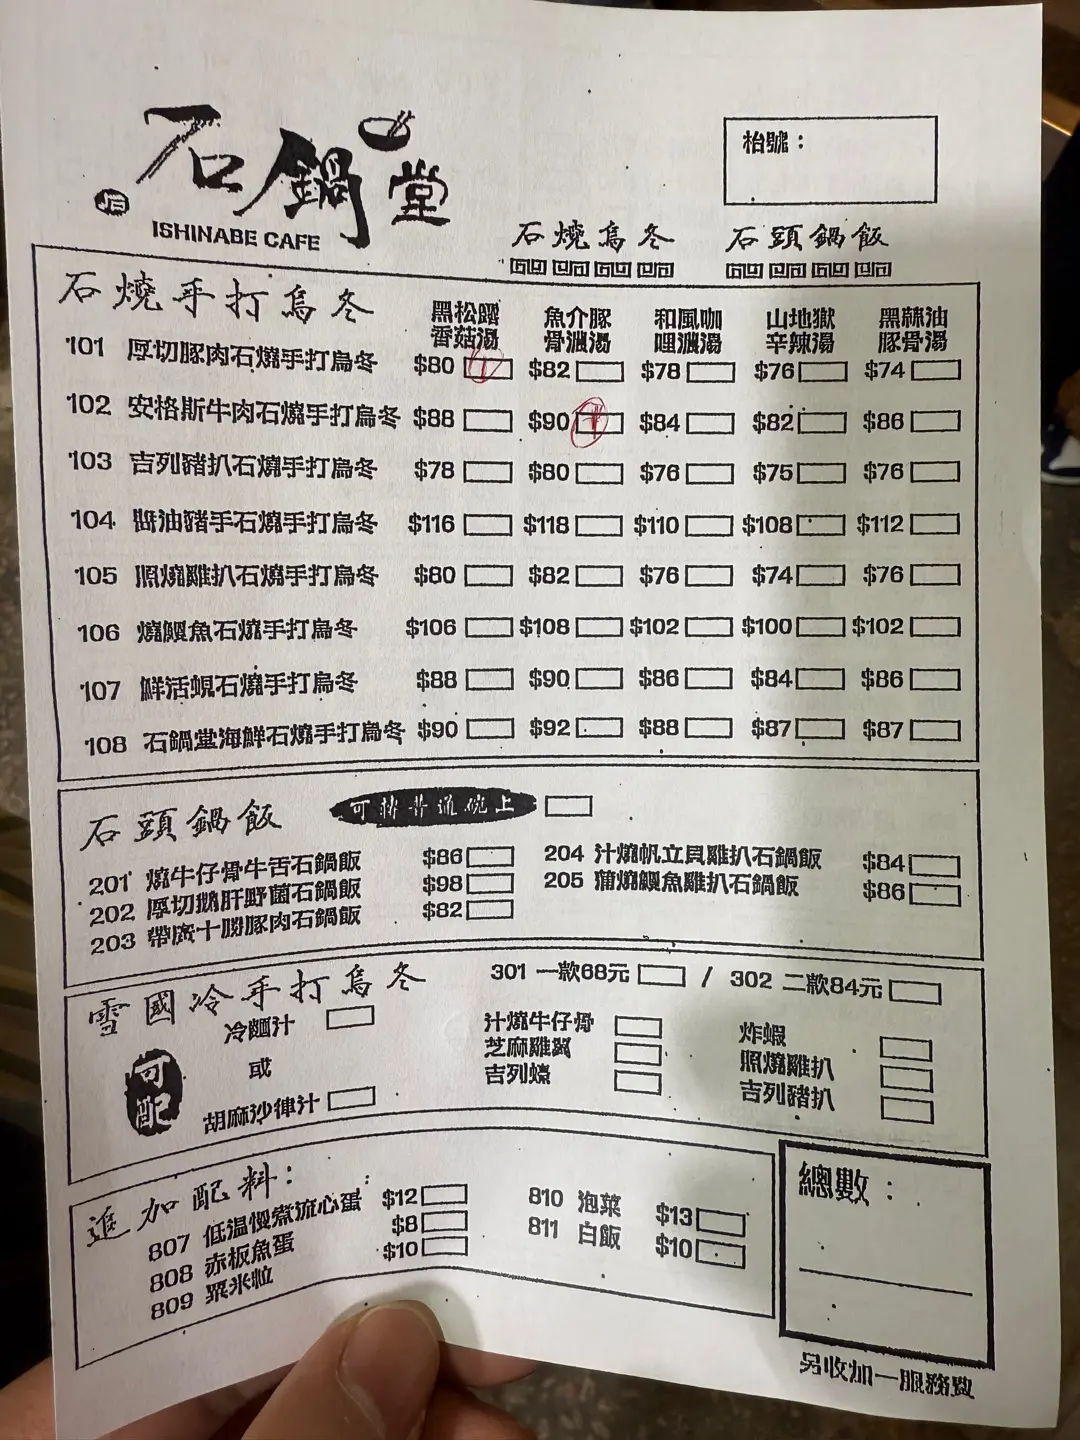 石鍋堂
ISHINABE CAFE
枱號：
石燒烏冬 石頭鍋飯
石燒手打烏冬
黑松露香菇湯 魚介豚骨濃湯 和風咖喱濃湯 山地獄辛辣湯 黑蒜油豚骨湯
101 厚切豚肉石燒手打烏冬 $80 $82 $78 $76 $74
102 安格斯牛肉石燒手打烏冬 $88 $90 $84 $82 $86
103 吉列豬扒石燒手打烏冬 $78 $80 $76 $75 $76
104 醬油豬手石燒手打烏冬 $116 $118 $110 $108 $112
105 照燒雞扒石燒手打烏冬 $80 $82 $76 $74 $76
106 燒鰻魚石燒手打烏冬 $106 $108 $102 $100 $102
107 鮮活蜆石燒手打烏冬 $88 $90 $86 $84 $86
108 石鍋堂海鮮石燒手打烏冬 $90 $92 $88 $87 $87
石頭鍋飯 可轉普通碗上
201 燒牛仔骨牛舌石鍋飯 $86
202 厚切鵝肝野菌石鍋飯 $98
203 帶廣十勝豚肉石鍋飯 $82
204 汁燒帆立貝雞扒石鍋飯 $84
205 蒲燒鰻魚雞扒石鍋飯 $86
雪國冷手打烏冬 301 一款68元 / 302 二款84元
可配
冷麵汁
或
胡麻沙律汁
汁燒牛仔骨
芝麻雞翼
吉列蠔
炸蝦
照燒雞扒
吉列豬扒
進加配料：
807 低温慢煮流心蛋 $12
808 赤板魚蛋 $8
809 粟米粒 $10
810 泡菜 $13
811 白飯 $10
總數：
另收加一服務費